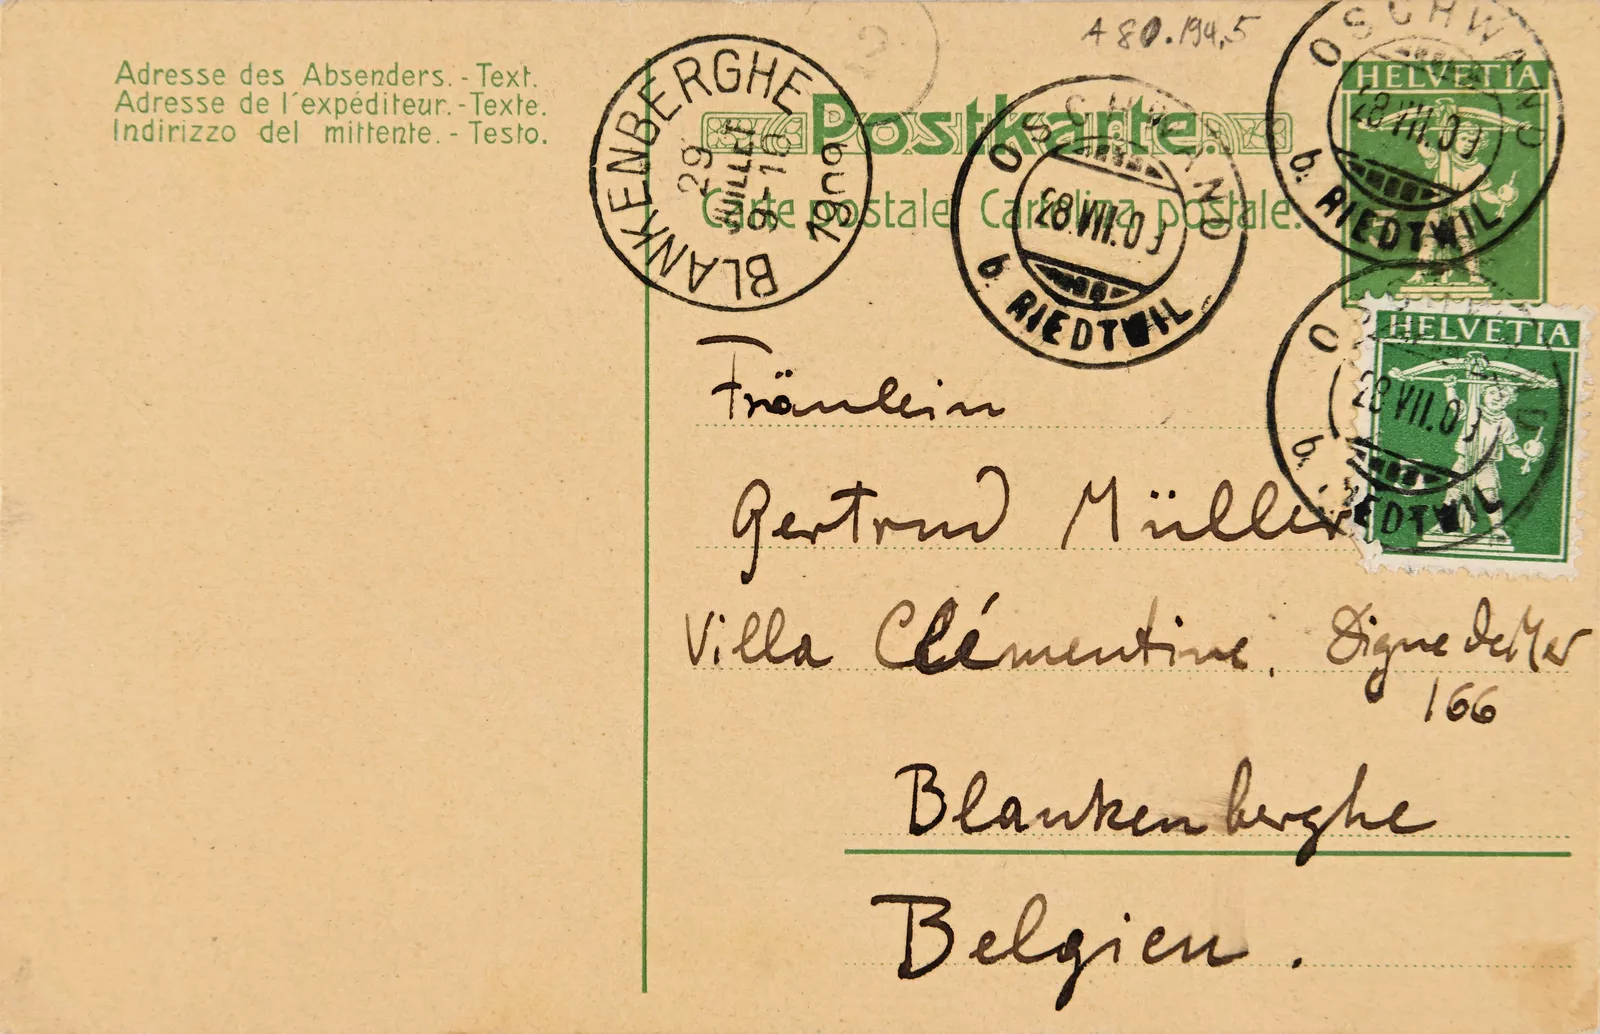 A 80.194,5
Adresse des Absenders. - Text.
Adresse de l'expéditeur. - Texte.
Indirizzo del mittente. - Testo.
BLANKENBERGHE
29
JUILLET
9-10
1909
BLANKENBERGHE
Postkarte.
Carte postale. Cartolina postale.
OSCHWAND
28.VII.09
b. RIEDTWIL
OSCHWAND
28.VII.09
b. RIEDTWIL
HELVETIA
OSCHWAND
28.VII.09
b. RIEDTWIL
HELVETIA
Fräulein
Gertrud Müller
Villa Clémentine, Digue de Mer
166
Blankenberghe
Belgien.